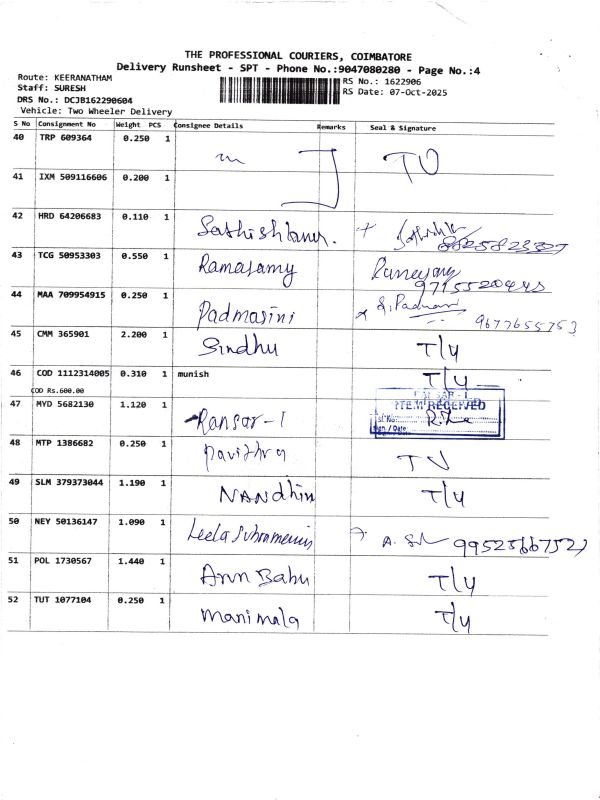 THE PROFESSIONAL COURIERS, COIMBATORE
Delivery Runsheet - SPT - Phone No.:9047080280 - Page No.:4
Route: KEERANATHAM
RS No.: 1622906
Staff: SURESH
RS Date: 07-Oct-2025
DRS No.: DCJB162290604
Vehicle: Two Wheeler Delivery
S No Consignment No Weight PCS Consignee Details Remarks Seal & Signature
40 TRP 609364 0.250 1
41 IXM 509116606 0.200 1
42 HRD 64206683 0.110 1 Sathishkumar.
43 TCG 50953303 0.550 1 Ramasamy 9715520448
44 MAA 709954915 0.250 1 Padmasini 9677655753
45 CMM 365901 2.200 1 Sindhu T/4
46 COD 1112314005 0.310 1 munish T/4
COD Rs.600.00
47 MYD 5682130 1.120 1 Ransar-1 ITEM RECEIVED
48 MTP 1386682 0.250 1 Pavithra TU
49 SLM 379373044 1.190 1 NANdhini T/4
50 NEY 50136147 1.090 1 Leela 9952566752
51 POL 1730567 1.440 1 Arun Babu T/4
52 TUT 1077104 0.250 1 Manimala T/4